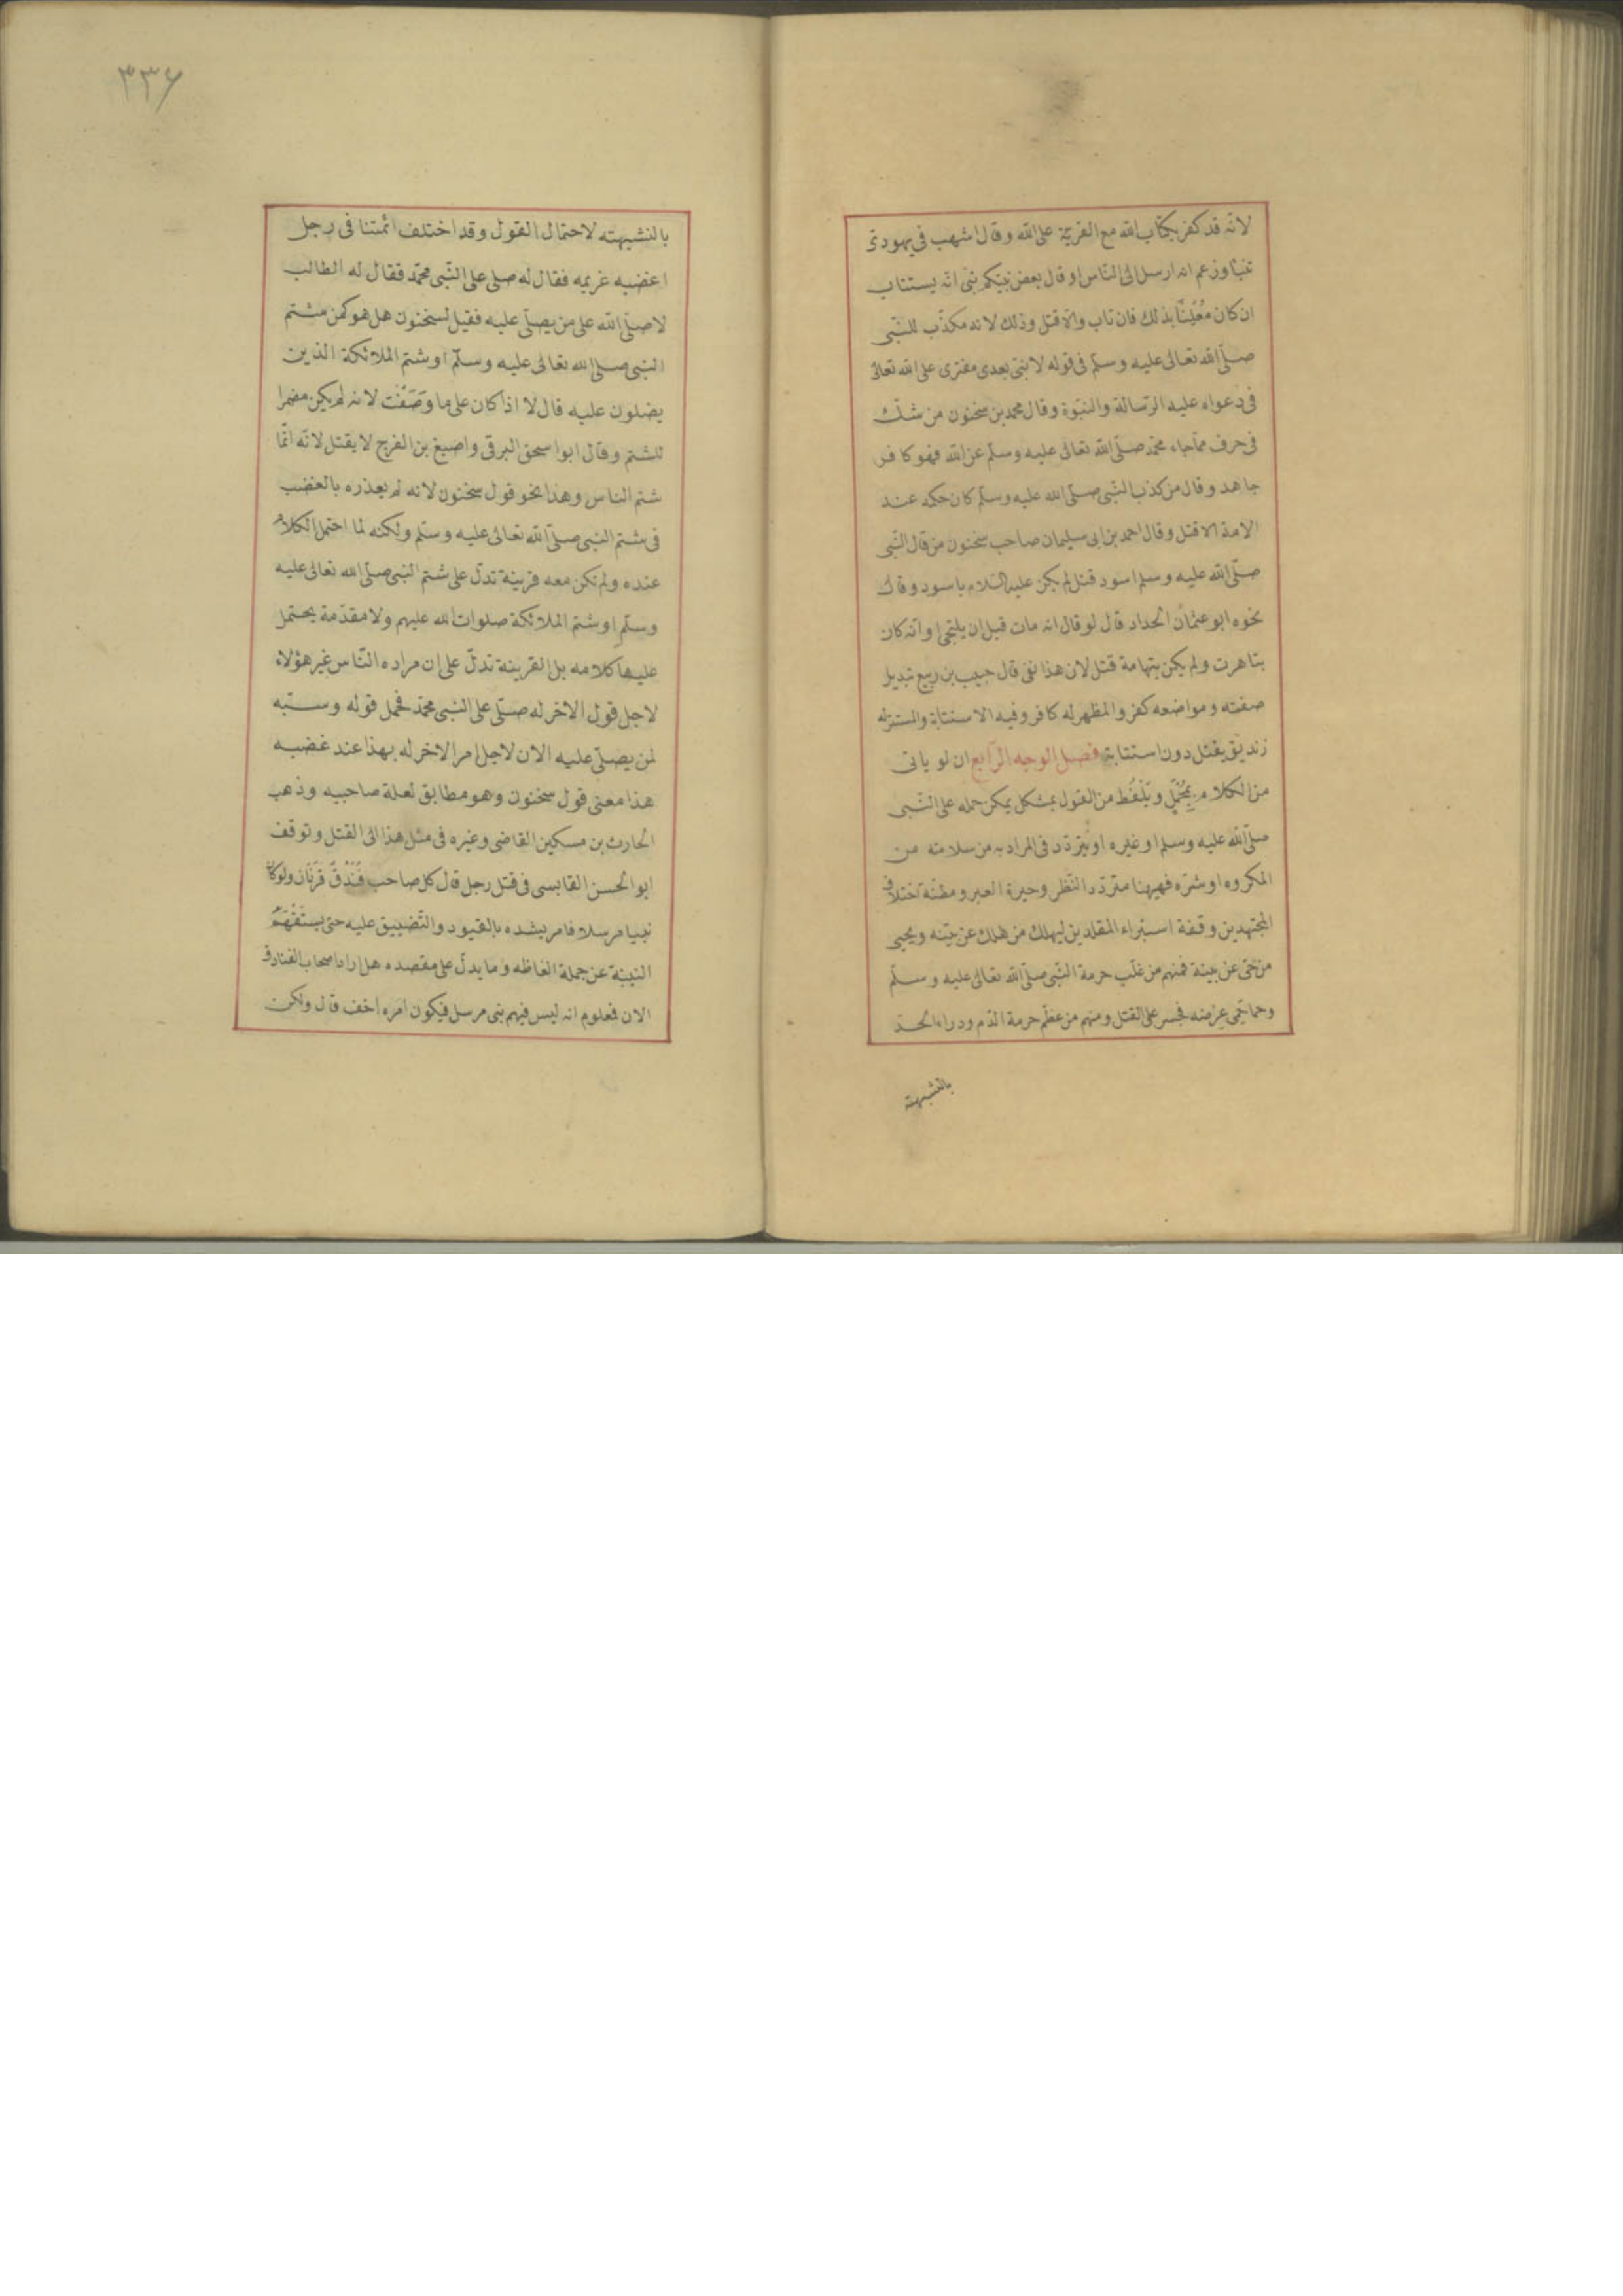 لانّه قد كفر بكتاب الله مع الفرية على الله وقال اشهب فى يهودى
تنبّا وزعم انه ارسل الى النّاس او قال بعض نبيّكم نبى انّه يستتاب
ان كان مُعْلِنًا بذلك فان تاب والّا قتل وذلك لانه مكذّب للنّبى
صلّى الله تعالى عليه وسلّم فى قوله لا نبىّ بعدى مفترى على الله تعالى
فى دعواه عليه الرّسالة والنبّوة وقال محمد بن سخنون من شكّ
فى حرف ممّا جاء محمّد صلّى الله تعالى عليه وسلّم عن الله فهو كافر
جاهد وقال من كذب النّبى صلّى الله عليه وسلّم كان حكمه عند
الامة الا قتل وقال احمد بن ابى سليمان صاحب سخنون من قال النّبى
صلّى الله عليه وسلم اسود قتل لم يكن عليه السّلام باسود وقال
نخوه ابو عثمان الحداد قال لو قال انه مات قبل ان يلتحى او انّه كان
بتاهرت ولم يكن بتهامة قتل لان هذا نفى قال حبيب بن ربيع تبديل
صفته ومواضعه كفر والمظهر له كافر وفيه الاستتابة والمستتر له
زنديق يقتل دون استتابة فصل الوجه الرّابع ان لو ياتى
من الكلام بِمُجْمَلٍ وتَلْفُظ من القول بمشكل يمكن حمله على النّبى
صلّى الله عليه وسلم او غيره او يتردّد فى المراد به من سلامته من
المكروه او شرّه فهيهنا متردّد النّظر وحيرة العبر ومظنّة اختلاف
المجتهدين وقفة استبراء المقلدين ليهلك من هلك عن بيّنه ويحيى
من حىّ عن بينة فمنهم من غلّب حرمة النّبى صلّى الله تعالى عليه وسلّم
وحما حِمَى عِرْضه فجسر على القتل ومنهم من عظّم حرمة الدّم ودراء الحدّ
بالنشبهته
٣٣٦
بالنشبهته لاحتمال القول وقد اختلف ائمتنا فى رجل
اغضبه غريمه فقال له صلى على النّبى محمّد فقال له الطالب
لا صلّى الله على من يصلّى عليه فقيل لسخنون هل هو كمن شتم
النبّى صلّى الله تعالى عليه وسلّم او شتم الملائكة الذين
يصلون عليه قال لا اذا كان على ما وَصَفْتَ لانه لم يكن مضمرا
للشتم وقال ابو اسحق البرقى واصبغ بن الفرج لا يقتل لانّه انّما
شتم الناس وهذا نحو قول سخنون لانه لم يعذره بالغضب
فى شتم النبى صلّى الله تعالى عليه وسلّم ولكنه لما احتمل الكلام
عنده ولم تكن معه قرينة تدلّ على شتم النبى صلّى الله تعالى عليه
وسلّم او شتم الملائكة صلوات الله عليهم ولا مقدّمة يحتمل
عليها كلامه بل القرينة تدلّ على ان مراده النّاس غير هؤلاء
لاجل قول الاخر له صلّى على النبى محمّد فحمل قوله وسبّه
لمن يصلّى عليه الان لاجل امر الاخر له بهذا عند غضبه
هذا معنى قول سخنون وهو مطابق لعلة صاحبيه وذهب
الحارث بن مسكين القاضى وغيره فى مثل هذا الى القتل وتوقف
ابو الحسن القابسى فى قتل رجل قال كل صاحب فُنْدُقٍ قَرْنَان ولو كان
نبيا مرسلا فامر بشده بالقيود والتّضييق عليه حتى يستَفْهَمُ
النيبة عن جملة الفاظه وما يدلّ على مقصده هل اراد اصحاب الفنادق
الان فعلوم انه ليس فيهم نبى مرسل فيكون امره اخف قال ولكن